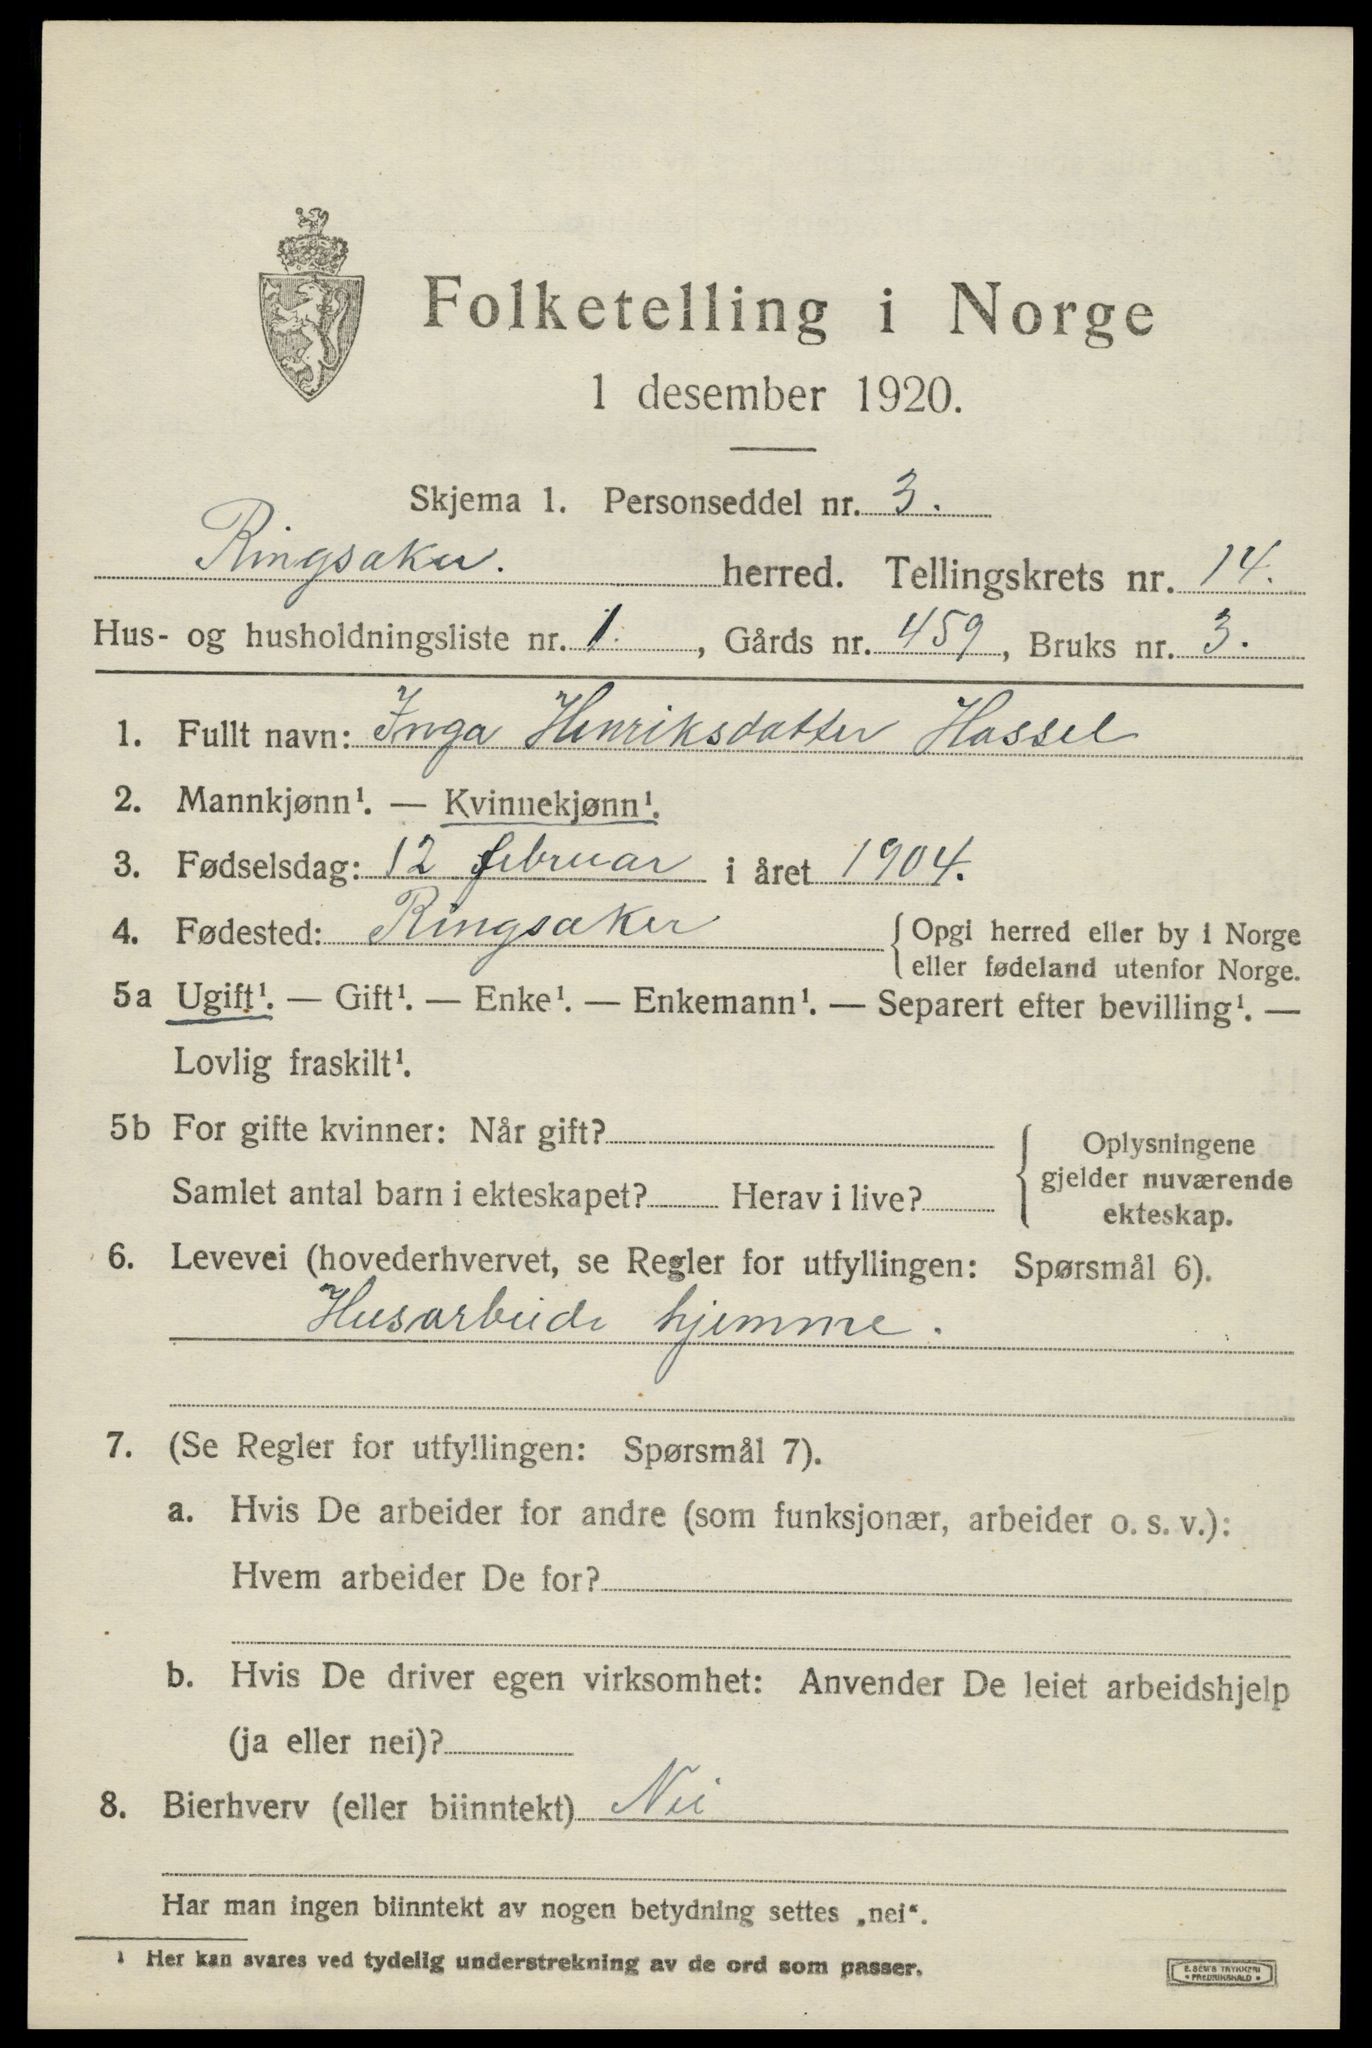 Folketelling i Norge
1 desember 1920.
Skjema 1. Personseddel nr. 3.
Ringsaker. herred. Tellingskrets nr. 14.
Hus- og husholdningsliste nr. 1. , Gårds nr. 459, Bruks nr. 3.
1. Fullt navn: Inga Henriksdatter Hassel
2. Mannkjønn¹. — Kvinnekjønn¹.
3. Fødselsdag: 12 februar i året 1904.
4. Fødested: Ringsaker { Opgi herred eller by i Norge
eller fødeland utenfor Norge.
5a Ugift¹. — Gift¹. — Enke¹. — Enkemann¹. — Separert efter bevilling¹. —
Lovlig fraskilt¹.
5b For gifte kvinner: Når gift? { Oplysningene
gjelder nuværende
Samlet antal barn i ekteskapet? Herav i live?
ekteskap.
6. Levevei (hovederhvervet, se Regler for utfyllingen: Spørsmål 6).
Husarbeide hjemme.
7. (Se Regler for utfyllingen: Spørsmål 7).
a. Hvis De arbeider for andre (som funksjonær, arbeider o. s. v.):
Hvem arbeider De for?
b. Hvis De driver egen virksomhet: Anvender De leiet arbeidshjelp
(ja eller nei)?
8. Bierhverv (eller biinntekt) Nei
Har man ingen biinntekt av nogen betydning settes „nei“.
¹ Her kan svares ved tydelig understrekning av de ord som passer.
E. SEM'S TRYKKERI
• FREDRIKSHALD •